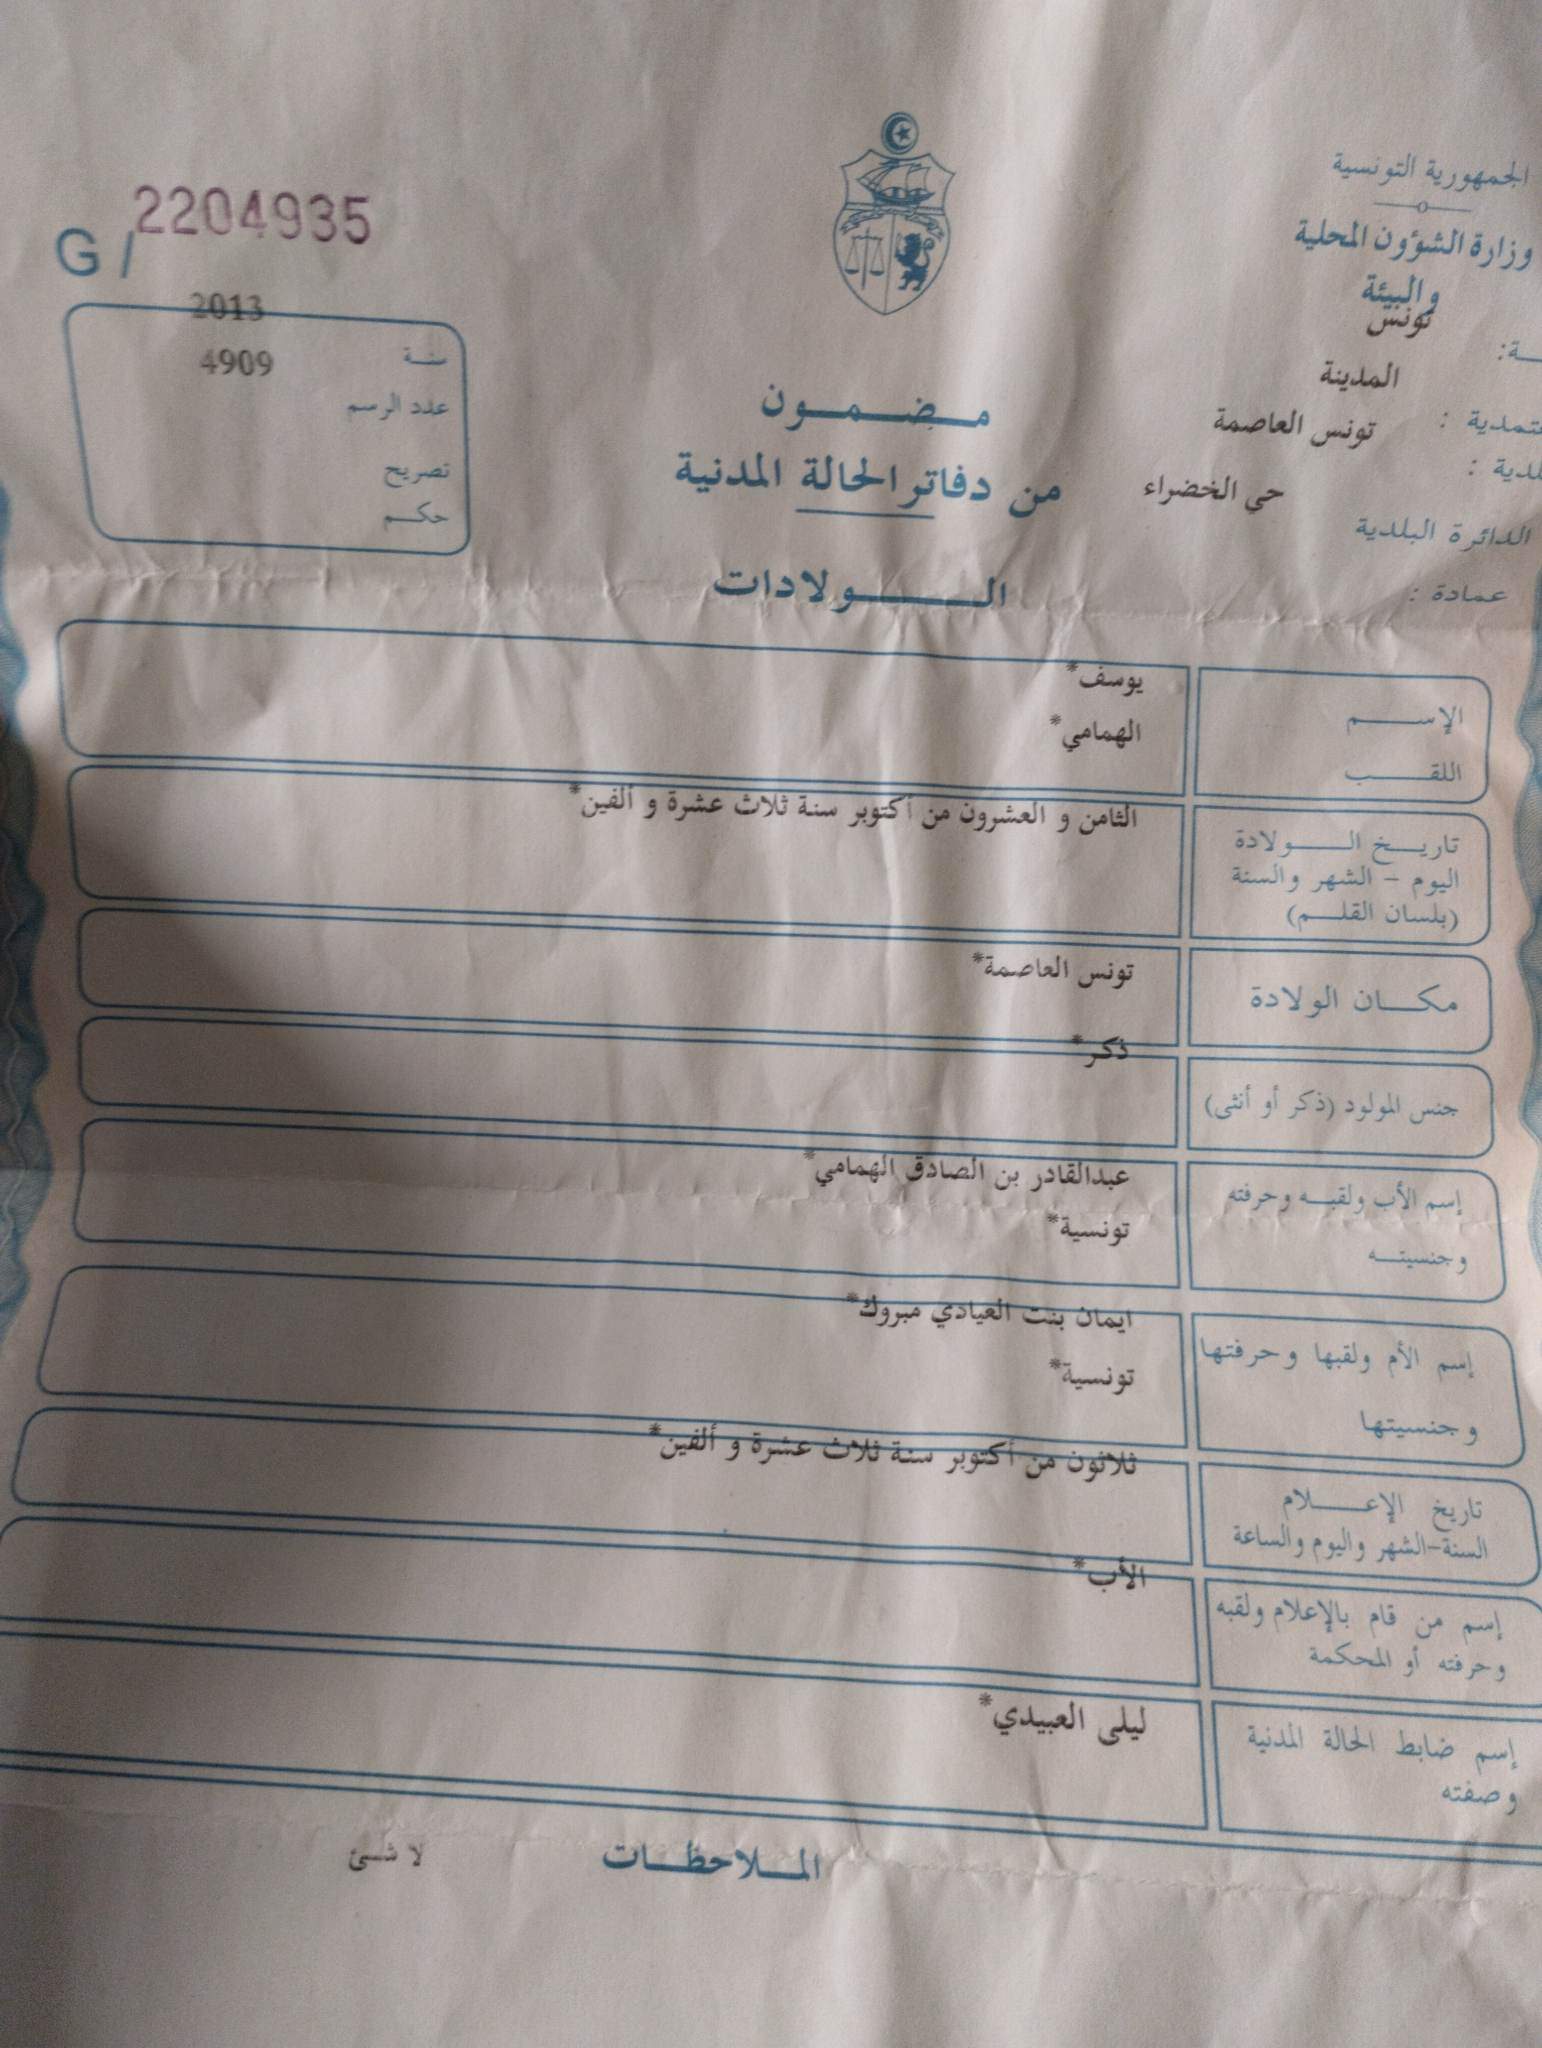 الجمهورية التونسية
وزارة الشؤون المحلية
والبيئة
تونس
المدينة
معتمدية :
تونس العاصمة
بلدية :
حي الخضراء
الدائرة البلدية
عمادة :
G / 2204935
2013
سنة
4909
عدد الرسم
تصريح
حكم
مضمون
من دفاتر الحالة المدنية
الولادات
الإسم
يوسف*
اللقب
الهمامي*
تاريخ الولادة
اليوم - الشهر والسنة
(بلسان القلم)
الثامن و العشرون من أكتوبر سنة ثلاث عشرة و ألفين*
مكان الولادة
تونس العاصمة*
جنس المولود (ذكر أو أنثى)
ذكر*
إسم الأب ولقبه وحرفته
عبدالقادر بن الصادق الهمامي*
وجنسيته
تونسية*
إسم الأم ولقبها وحرفتها
ايمان بنت العيادي مبروك*
وجنسيتها
تونسية*
تاريخ الإعلام
السنة-الشهر واليوم والساعة
ثلاثون من أكتوبر سنة ثلاث عشرة و ألفين*
إسم من قام بالإعلام ولقبه
وحرفته أو المحكمة
الأب*
إسم ضابط الحالة المدنية
وصفته
ليلى العبيدي*
الملاحظات
لا شئ